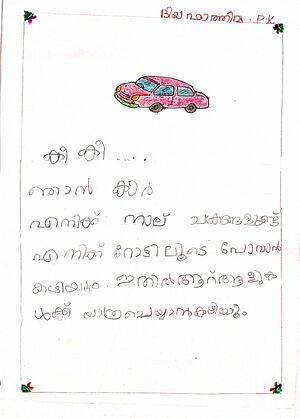 ദിയ ഫാത്തിമ. P.K
കീ കീ ....
ഞാൻ കാർ
എനിക്ക് നാല് ചക്രങ്ങളുണ്ട്
എനിക്ക് റോട്ടിലൂടെ പോവാൻ
കഴിയും. ഇതിൽആറ്ആളുക
ൾക്ക് യാത്രചെയ്യാൻകഴിയും